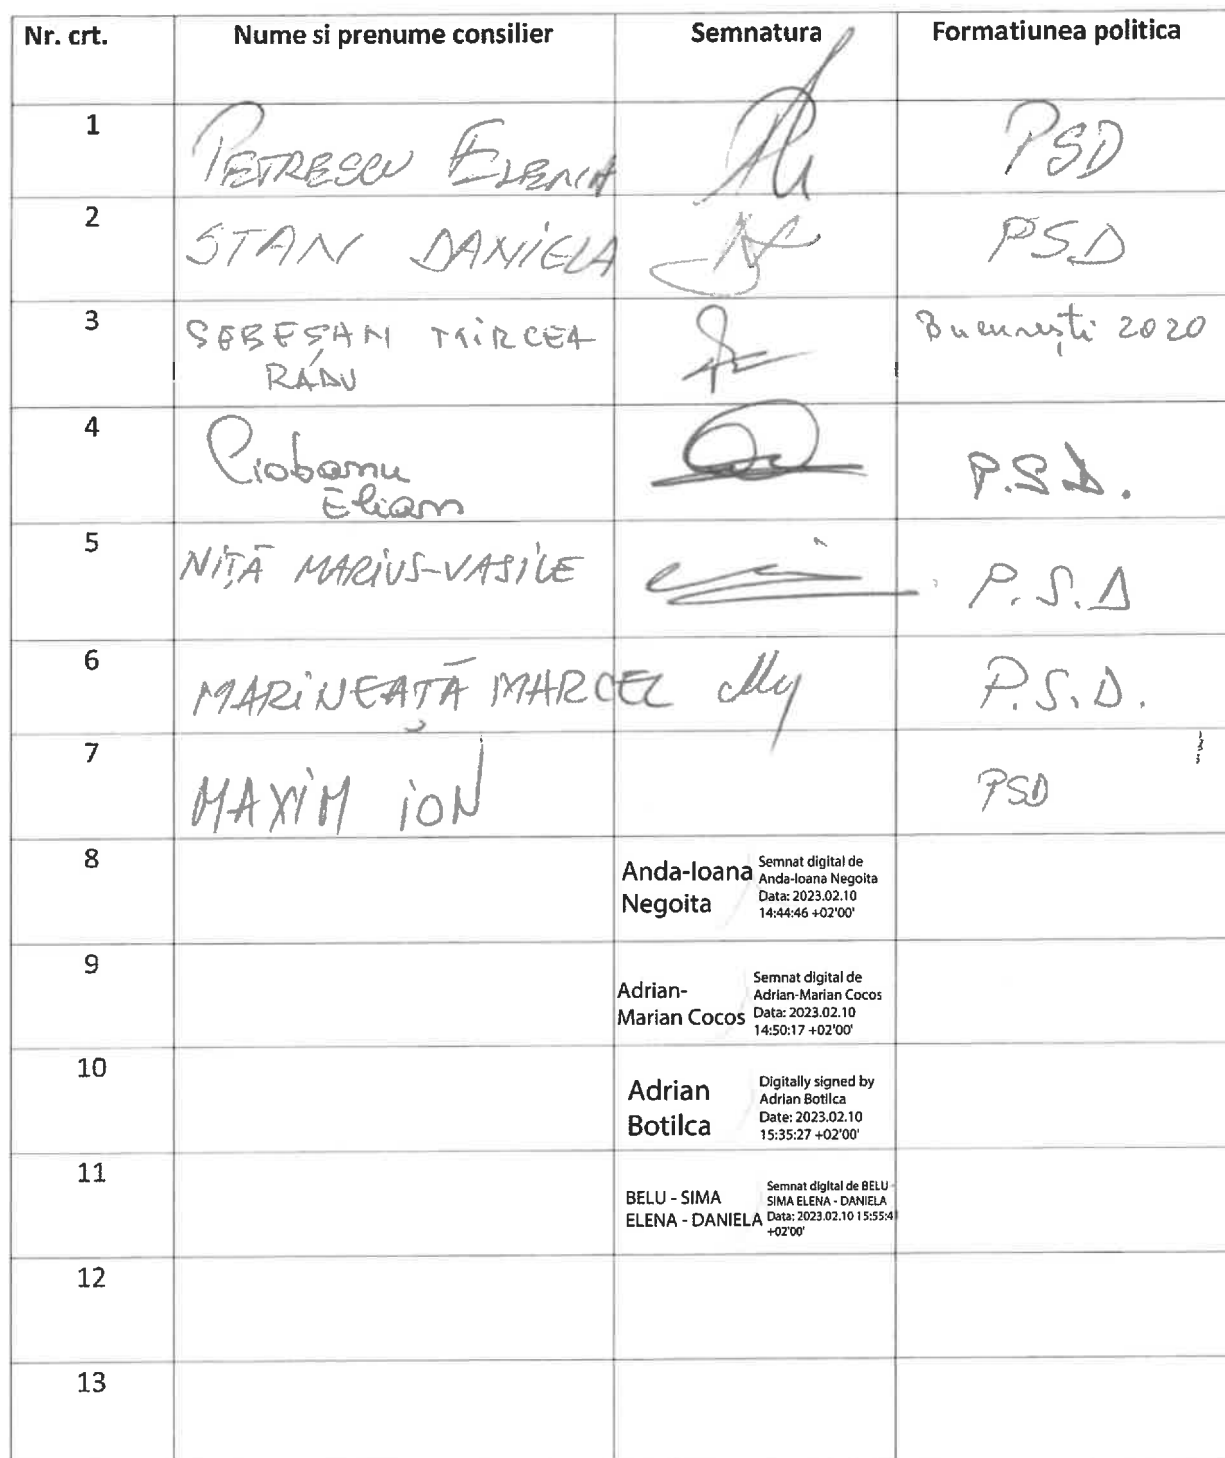 Nr. crt. Nume si prenume consilier Semnatura Formatiunea politica
1 PETRESCU ELENA PSD
2 STAN DANIELA PSD
3 SEBEȘAN MIRCEA București 2020
RADU
4 Ciobanu P.S.D.
Elian
5 NIȚĂ MARIUS-VASILE P.S.D
6 MARINEAȚĂ MARCEL P.S.D.
7 MAXIM ION PSD
8
Anda-Ioana
Negoita
Semnat digital de
Anda-Ioana Negoita
Data: 2023.02.10
14:44:46 +02'00'
9
Adrian-
Marian Cocos
Semnat digital de
Adrian-Marian Cocos
Data: 2023.02.10
14:50:17 +02'00'
10
Adrian
Botilca
Digitally signed by
Adrian Botilca
Date: 2023.02.10
15:35:27 +02'00'
11
BELU - SIMA
ELENA - DANIELA
Semnat digital de BELU -
SIMA ELENA - DANIELA
Data: 2023.02.10 15:55:4
+02'00'
12
13